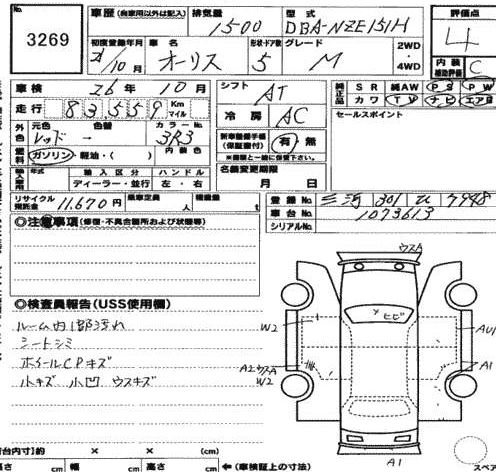 No. 3269
車歴 (自家用以外は記入) 排気量 1500 型式 DBA-NZE151H 評価点 4
初度登録年月 21/10月 車名 オーリス 形状・ドア 5 グレード M 2WD・4WD
内装補助評価 C
車検 26年10月 シフト AT
純正品 SR 純AW PS PW
カワ TV ナビ エアB
走行 83,559 Km マイル 冷房 AC
セールスポイント
外色 元色 レッド 色替 カラーNo. 3R3
燃料 ガソリン・軽油・( ) 内装色
新車整備手帳(保証書付) 有・無
※書類と一緒に保管下さい。
輸入車用 年式 輸入区分 ディーラー・並行 ハンドル 左・右
名義変更期限 月 日
リサイクル預託金 11,670円 乗車定員 人 積載量 t
登録No. 三河 301 ひ 7948
車台No. 1073613
シリアルNo.
◎注意事項(修復・不具合箇所および状態等)
◎検査員報告(USS使用欄)
ルーム内1部汚れ
シートシミ
ホイールCPキズ
小キズ 小凹 ウスキズ
ウスA
ヒビ
W2
AU1
A2 ウスA
W2
A1
A1
荷台内寸) 約 × × (cm)
長さ cm 幅 cm 高さ cm ←(車検証上の寸法)
スペア